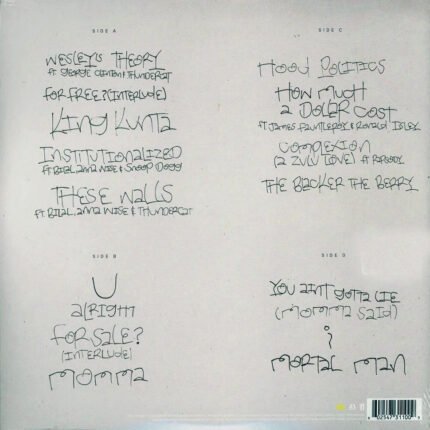 SIDE A
WESLEY'S THEORY
FT GEORGE CLINTON & THUNDERCAT
FOR FREE? (INTERLUDE)
KING KUNTA
INSTITUTIONALIZED
FT BILAL, ANNA WISE & SNOOP DOGG
THESE WALLS
FT BILAL, ANNA WISE & THUNDERCAT
SIDE B
U
ALRIGHT
FOR SALE?
(INTERLUDE)
MOMMA
SIDE C
HOOD POLITICS
HOW MUCH
A DOLLAR COST
FT. JAMES FAUNTLEROY & RONALD ISLEY
COMPLEXION
(A ZULU LOVE) FT RAPSODY
THE BLACKER THE BERRY
SIDE D
YOU AINT GOTTA LIE
(MOMMA SAID)
i
MORTAL MAN
02547 31100